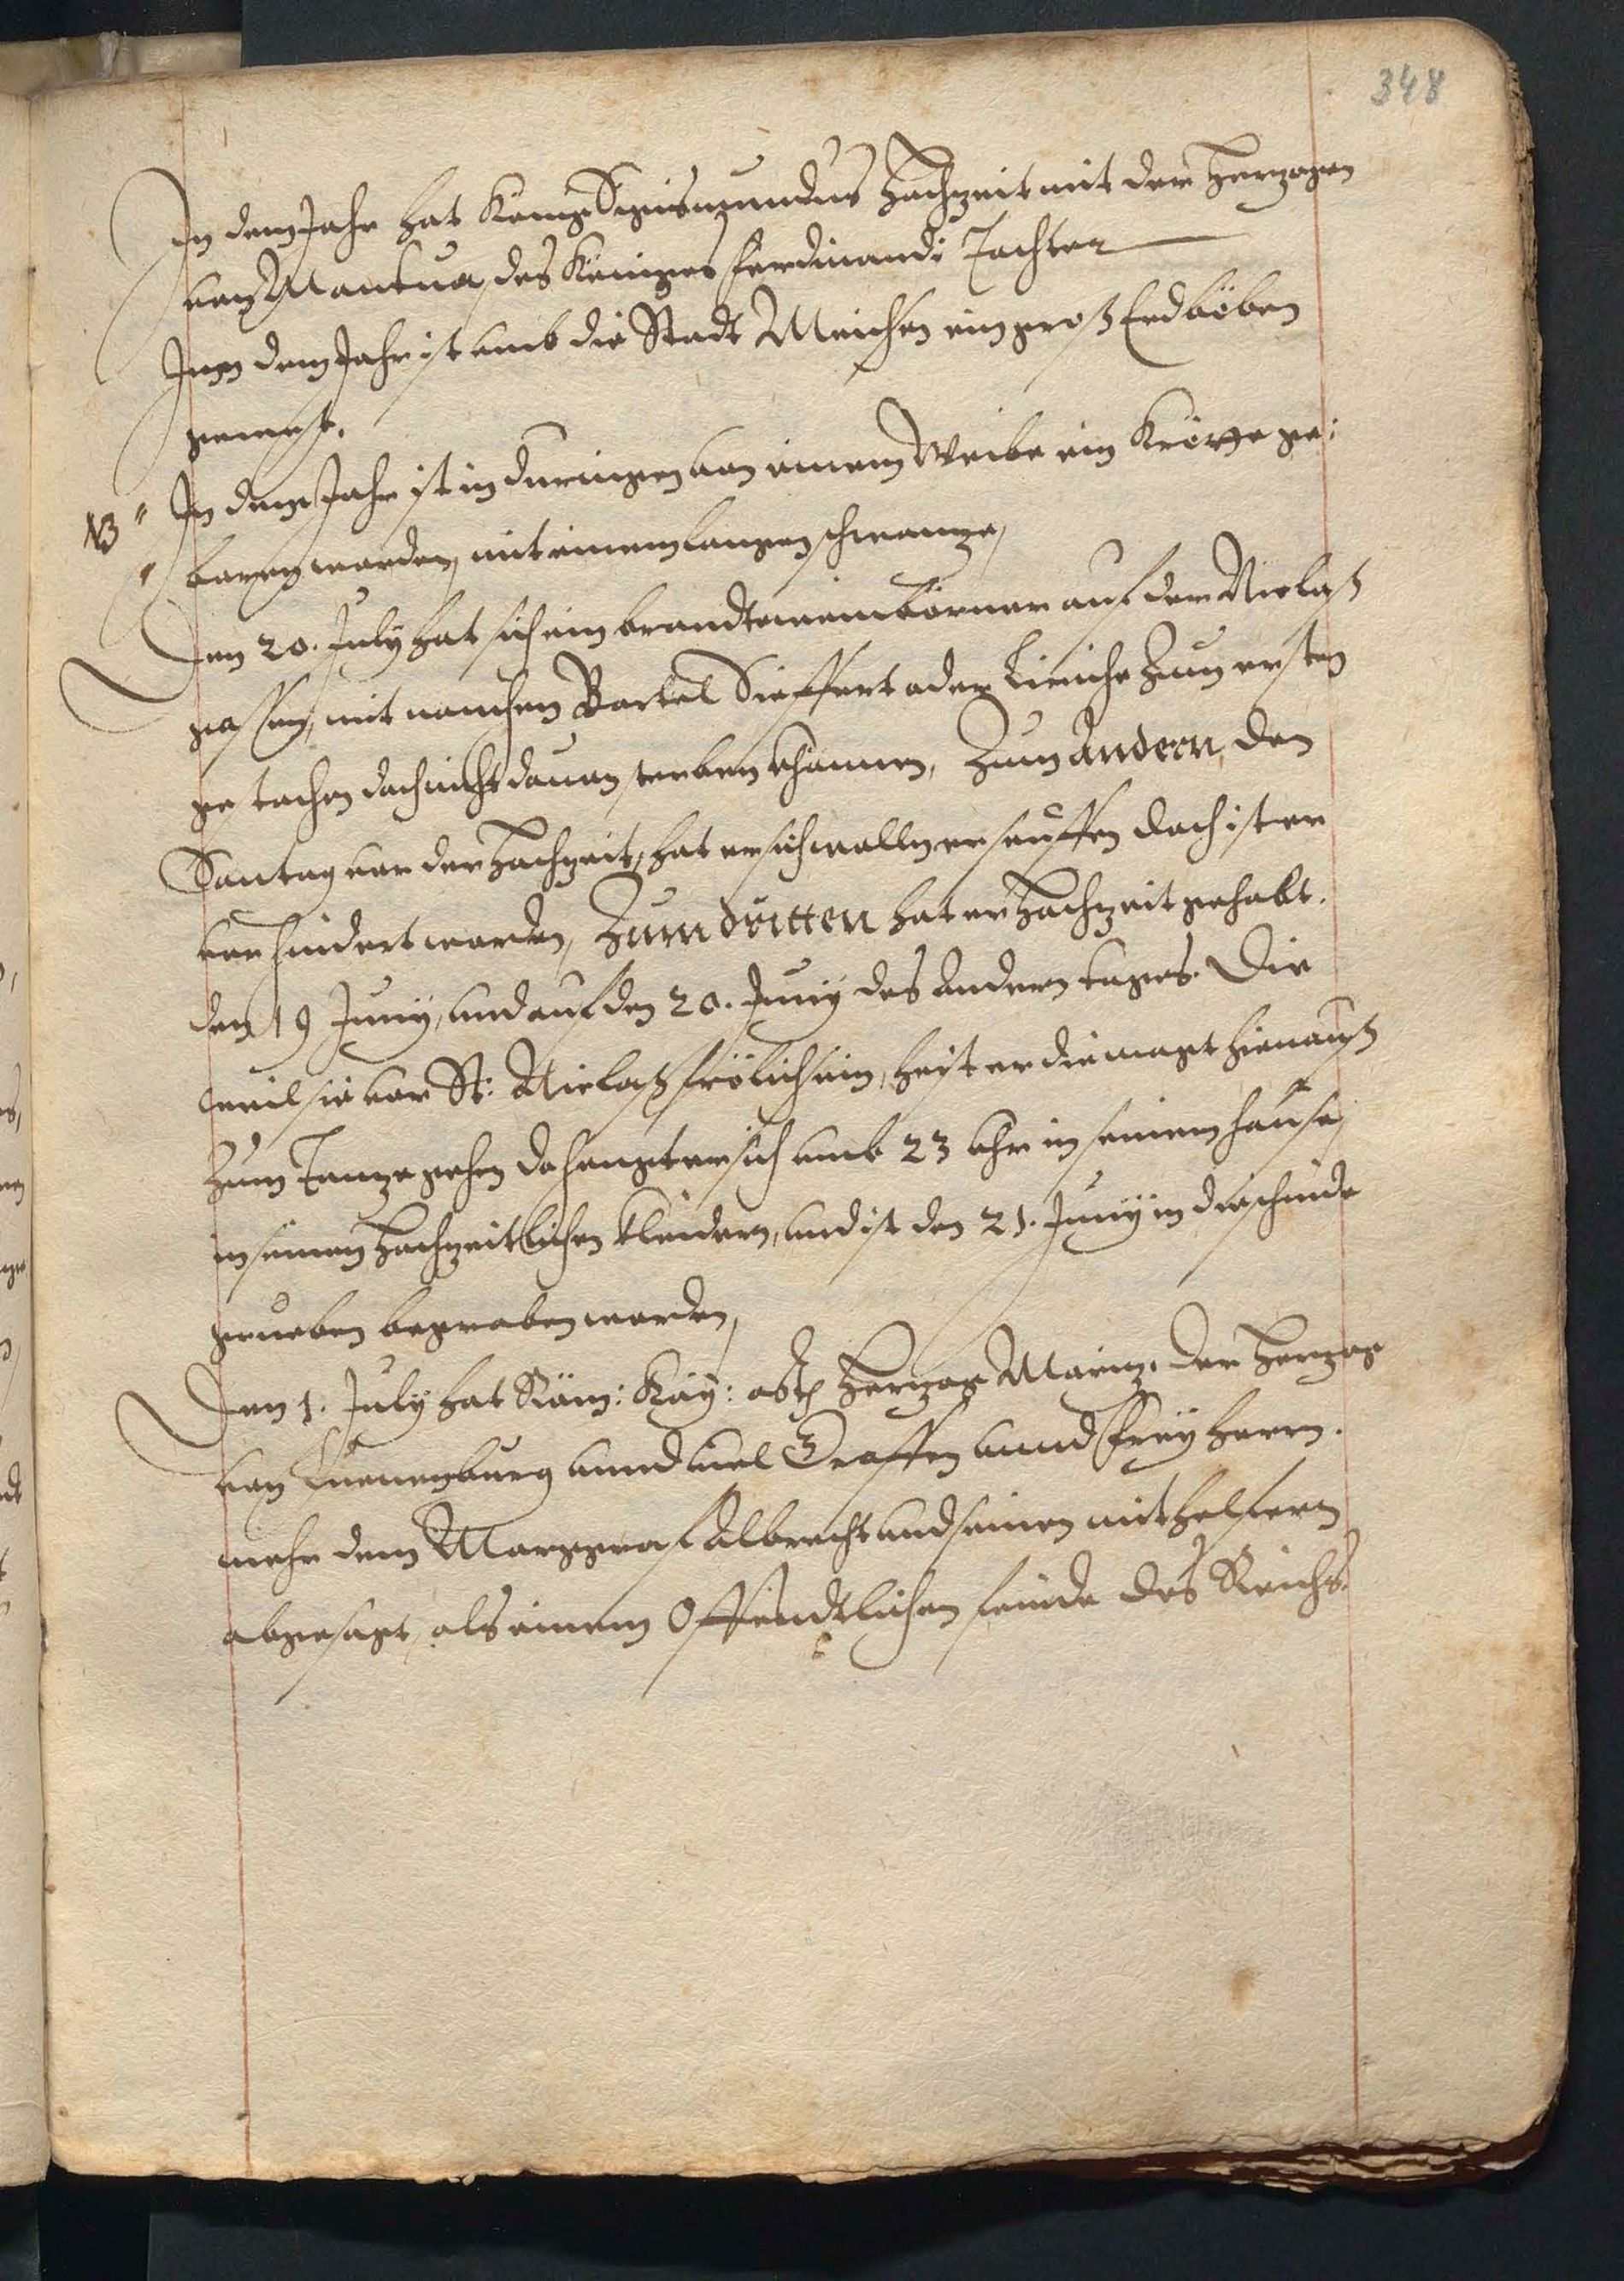 348
In dem Jahr hat Konig Sigismundus Hochzeit mit der Herzogen
von Mantua, des Koniges Ferdinandi Tochter
Inn dem Jahr ist umb die Stadt Meichsen ein groß Erdböben
gewest.
NB In dem Jahr ist in Duringen von einem Weibe ein Kröte ge:
boren worden, mit einem langen schwanze,
Den 20. July hat sich ein brandtweinbörner auf der Niclaß
gassen, mit namhen Bartel Sieffert oder Liriche zum ersten
gestochen doch nicht dauon sterben khönnen, Zum Andern, den
Sontag vor der Hochzeit, hat er sich wollen erseuffen doch ist er
verhindert worden, Zum dritten hat er Hochzeit gehabt.
den 19 Juny, und auf den 20. Juny des andern tages. Die
weil sie vor St: Niclaß frölich sein, heist er die magt hienauß
zum Tanze gehen do hengt er sich umb 23 uhr in seinem hause,
in seinen Hochzeitlichen kleidern, und ist den 21. Juny in die schinde
grueben begraben worden,
Den 1. July hat Röm: Kay: Herzog Moritz, der Herzog
von Luenenburg unnd viel Graffen unnd Freyherrn.
mehr dem Marggraf Albrecht und seinen mithelfern
abgesagt, als einem Offendtlichen feinde des Reichs.